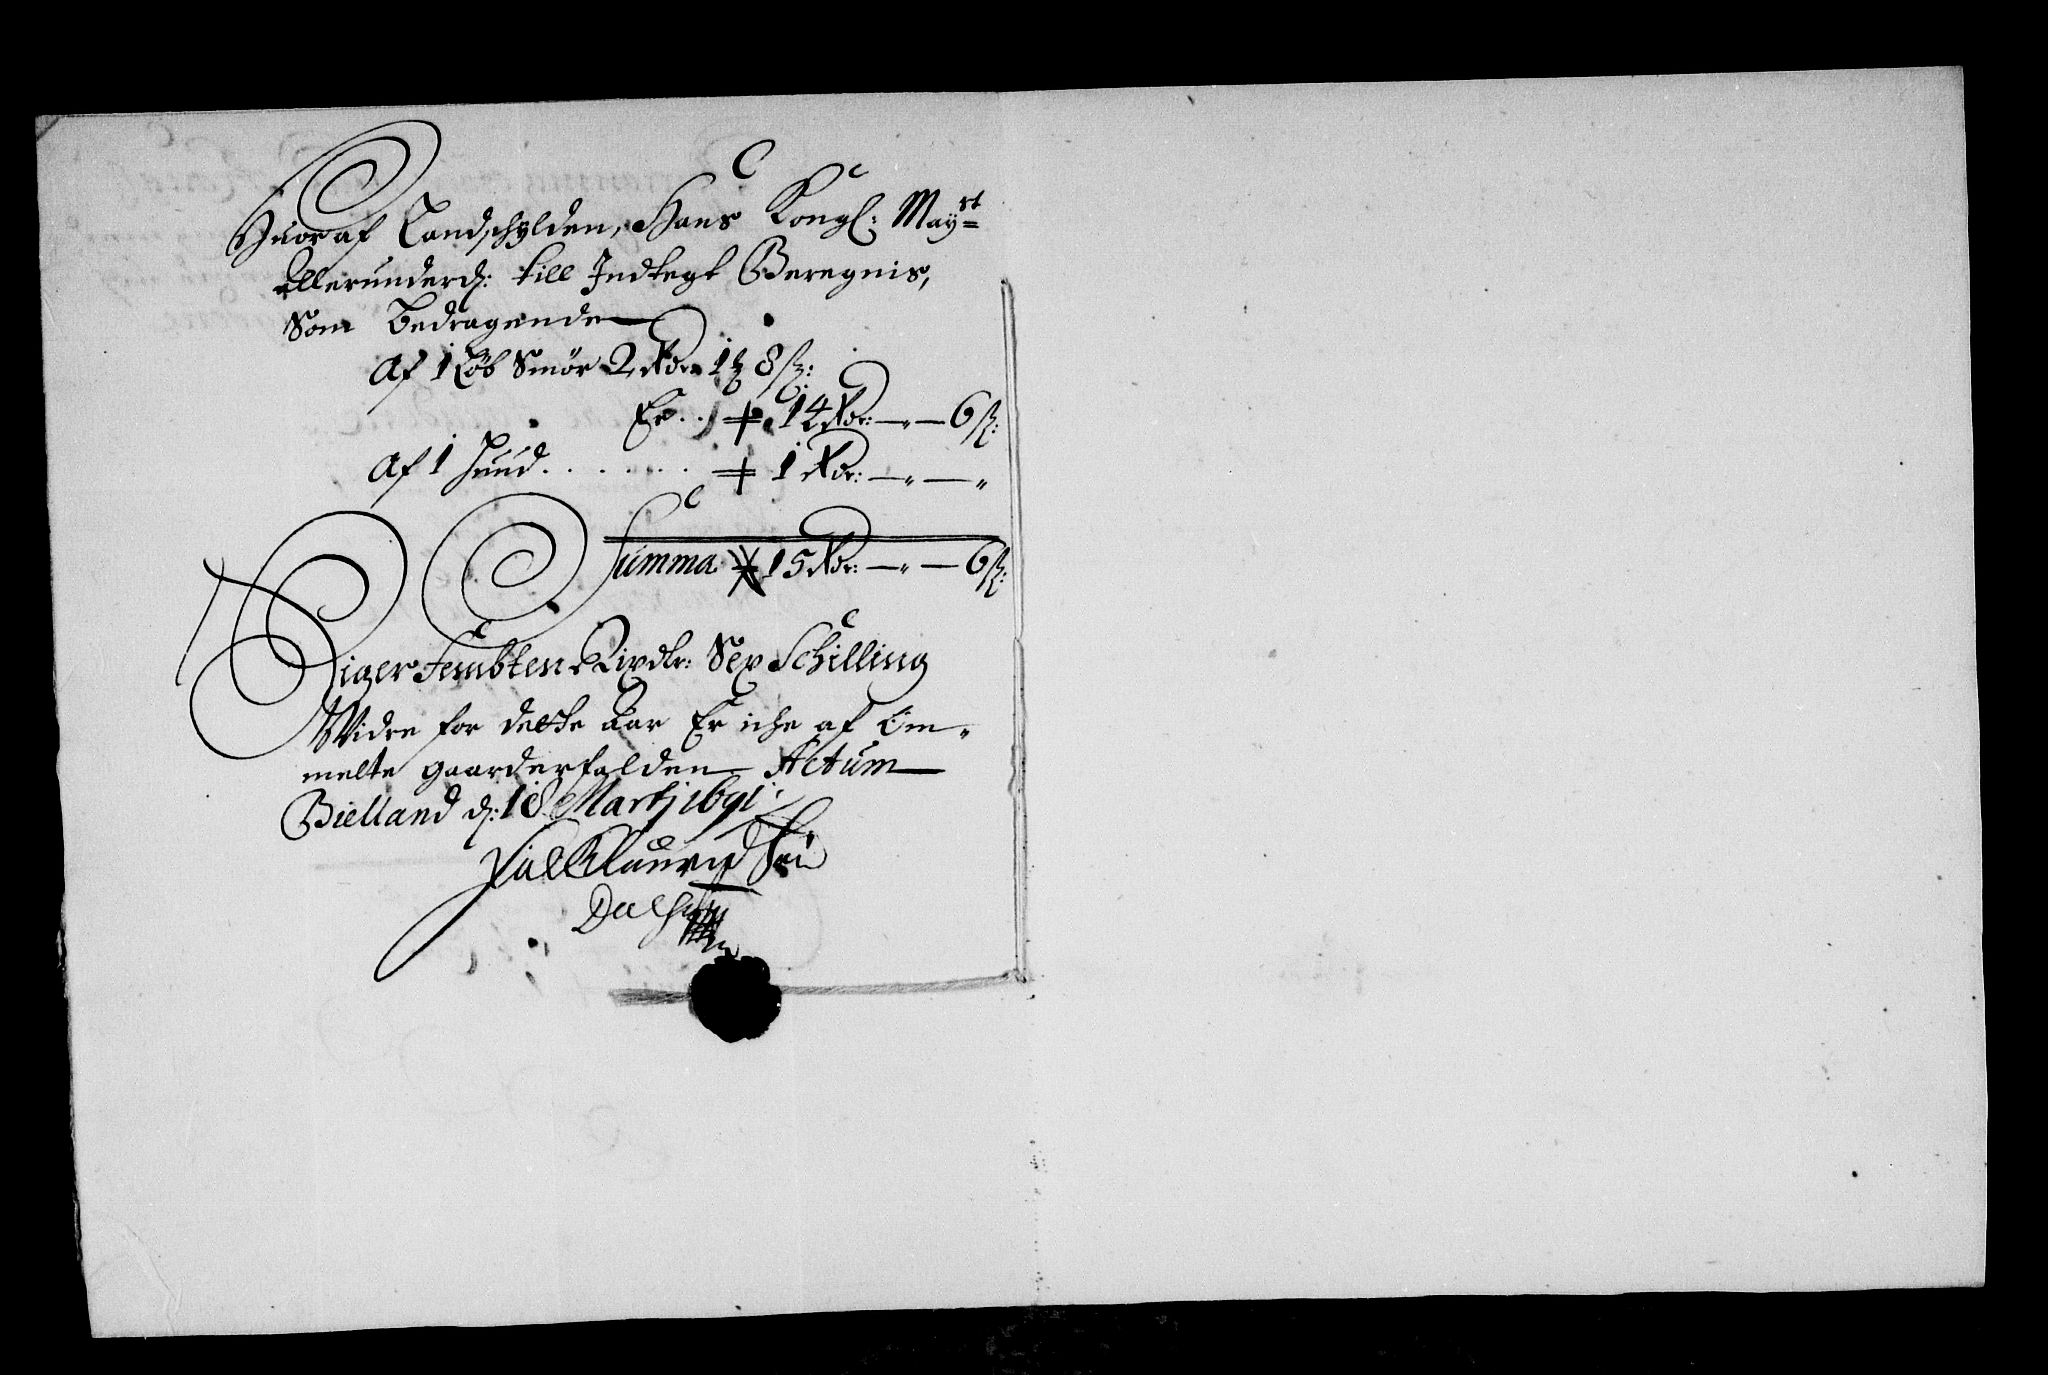 Huoraf Landschylden, Hans Kongl: Mayst
Allerunderd: till Indtegt Beregnis,
Som bedragende
Af 1 Løb Smør 2 Rdr 1 8 ß:
Er . . 14 Rdr: — „ — 6 ß:
Af 1 Huud . . . . . . 1 Rdr: — „ — „
Summa 15 Rdr: — „ — 6 ß:
Siger Fembten Rixdlr: Sex Schilling
Widre for dette Aar Er iche af Om-
melte gaarder falden Actum
Bielland d: 18 Martj 1691: